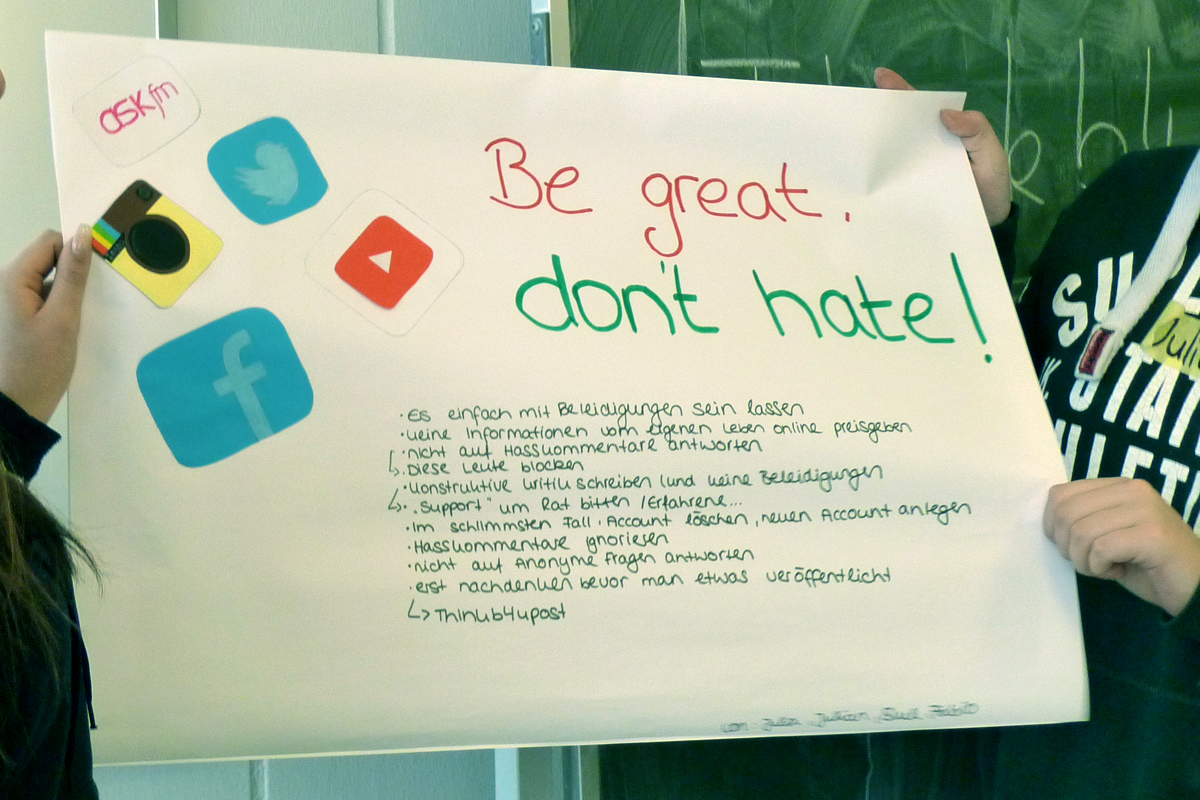 askfm
Be great.
don't hate!
f
· Es einfach mit Beleidigungen sein lassen
· keine Informationen vom eigenen Leben online preisgeben
· nicht auf Hasskommentare antworten
↳ · Diese Leute blocken
· Konstruktive Kritik schreiben (und keine Beleidigungen
↳ · „Support" um Rat bitten / Erfahrene...
· im schlimmsten Fall · Account löschen, neuen Account anlegen
· Hasskommentare ignorieren
· nicht auf Anonyme Fragen antworten
· erst nachdenken bevor man etwas veröffentlicht
↳ Thinkb4upost
von